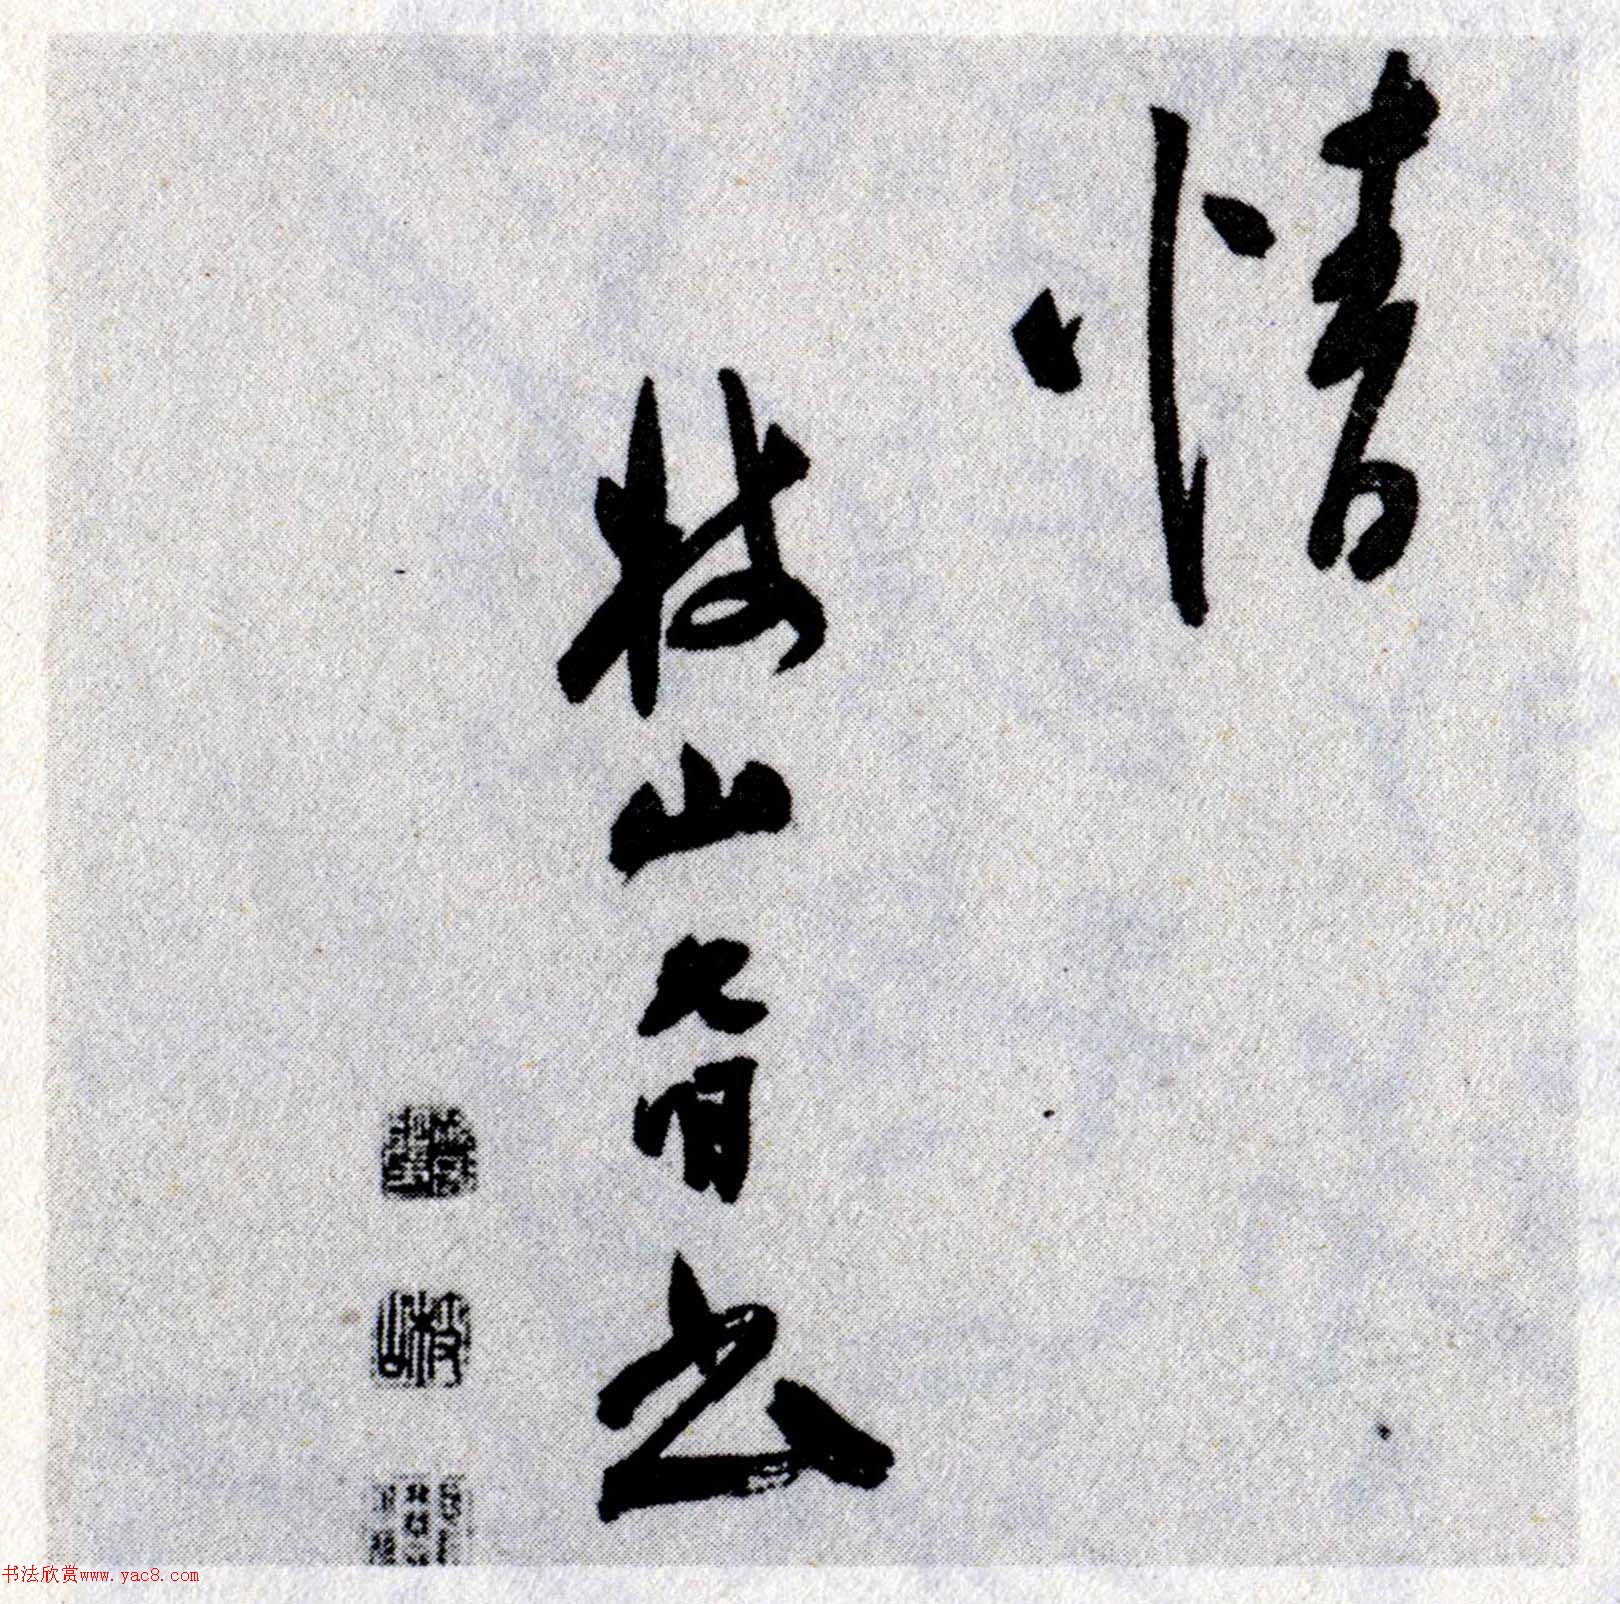 情
枝山允明書
书法欣赏www.yac8.com